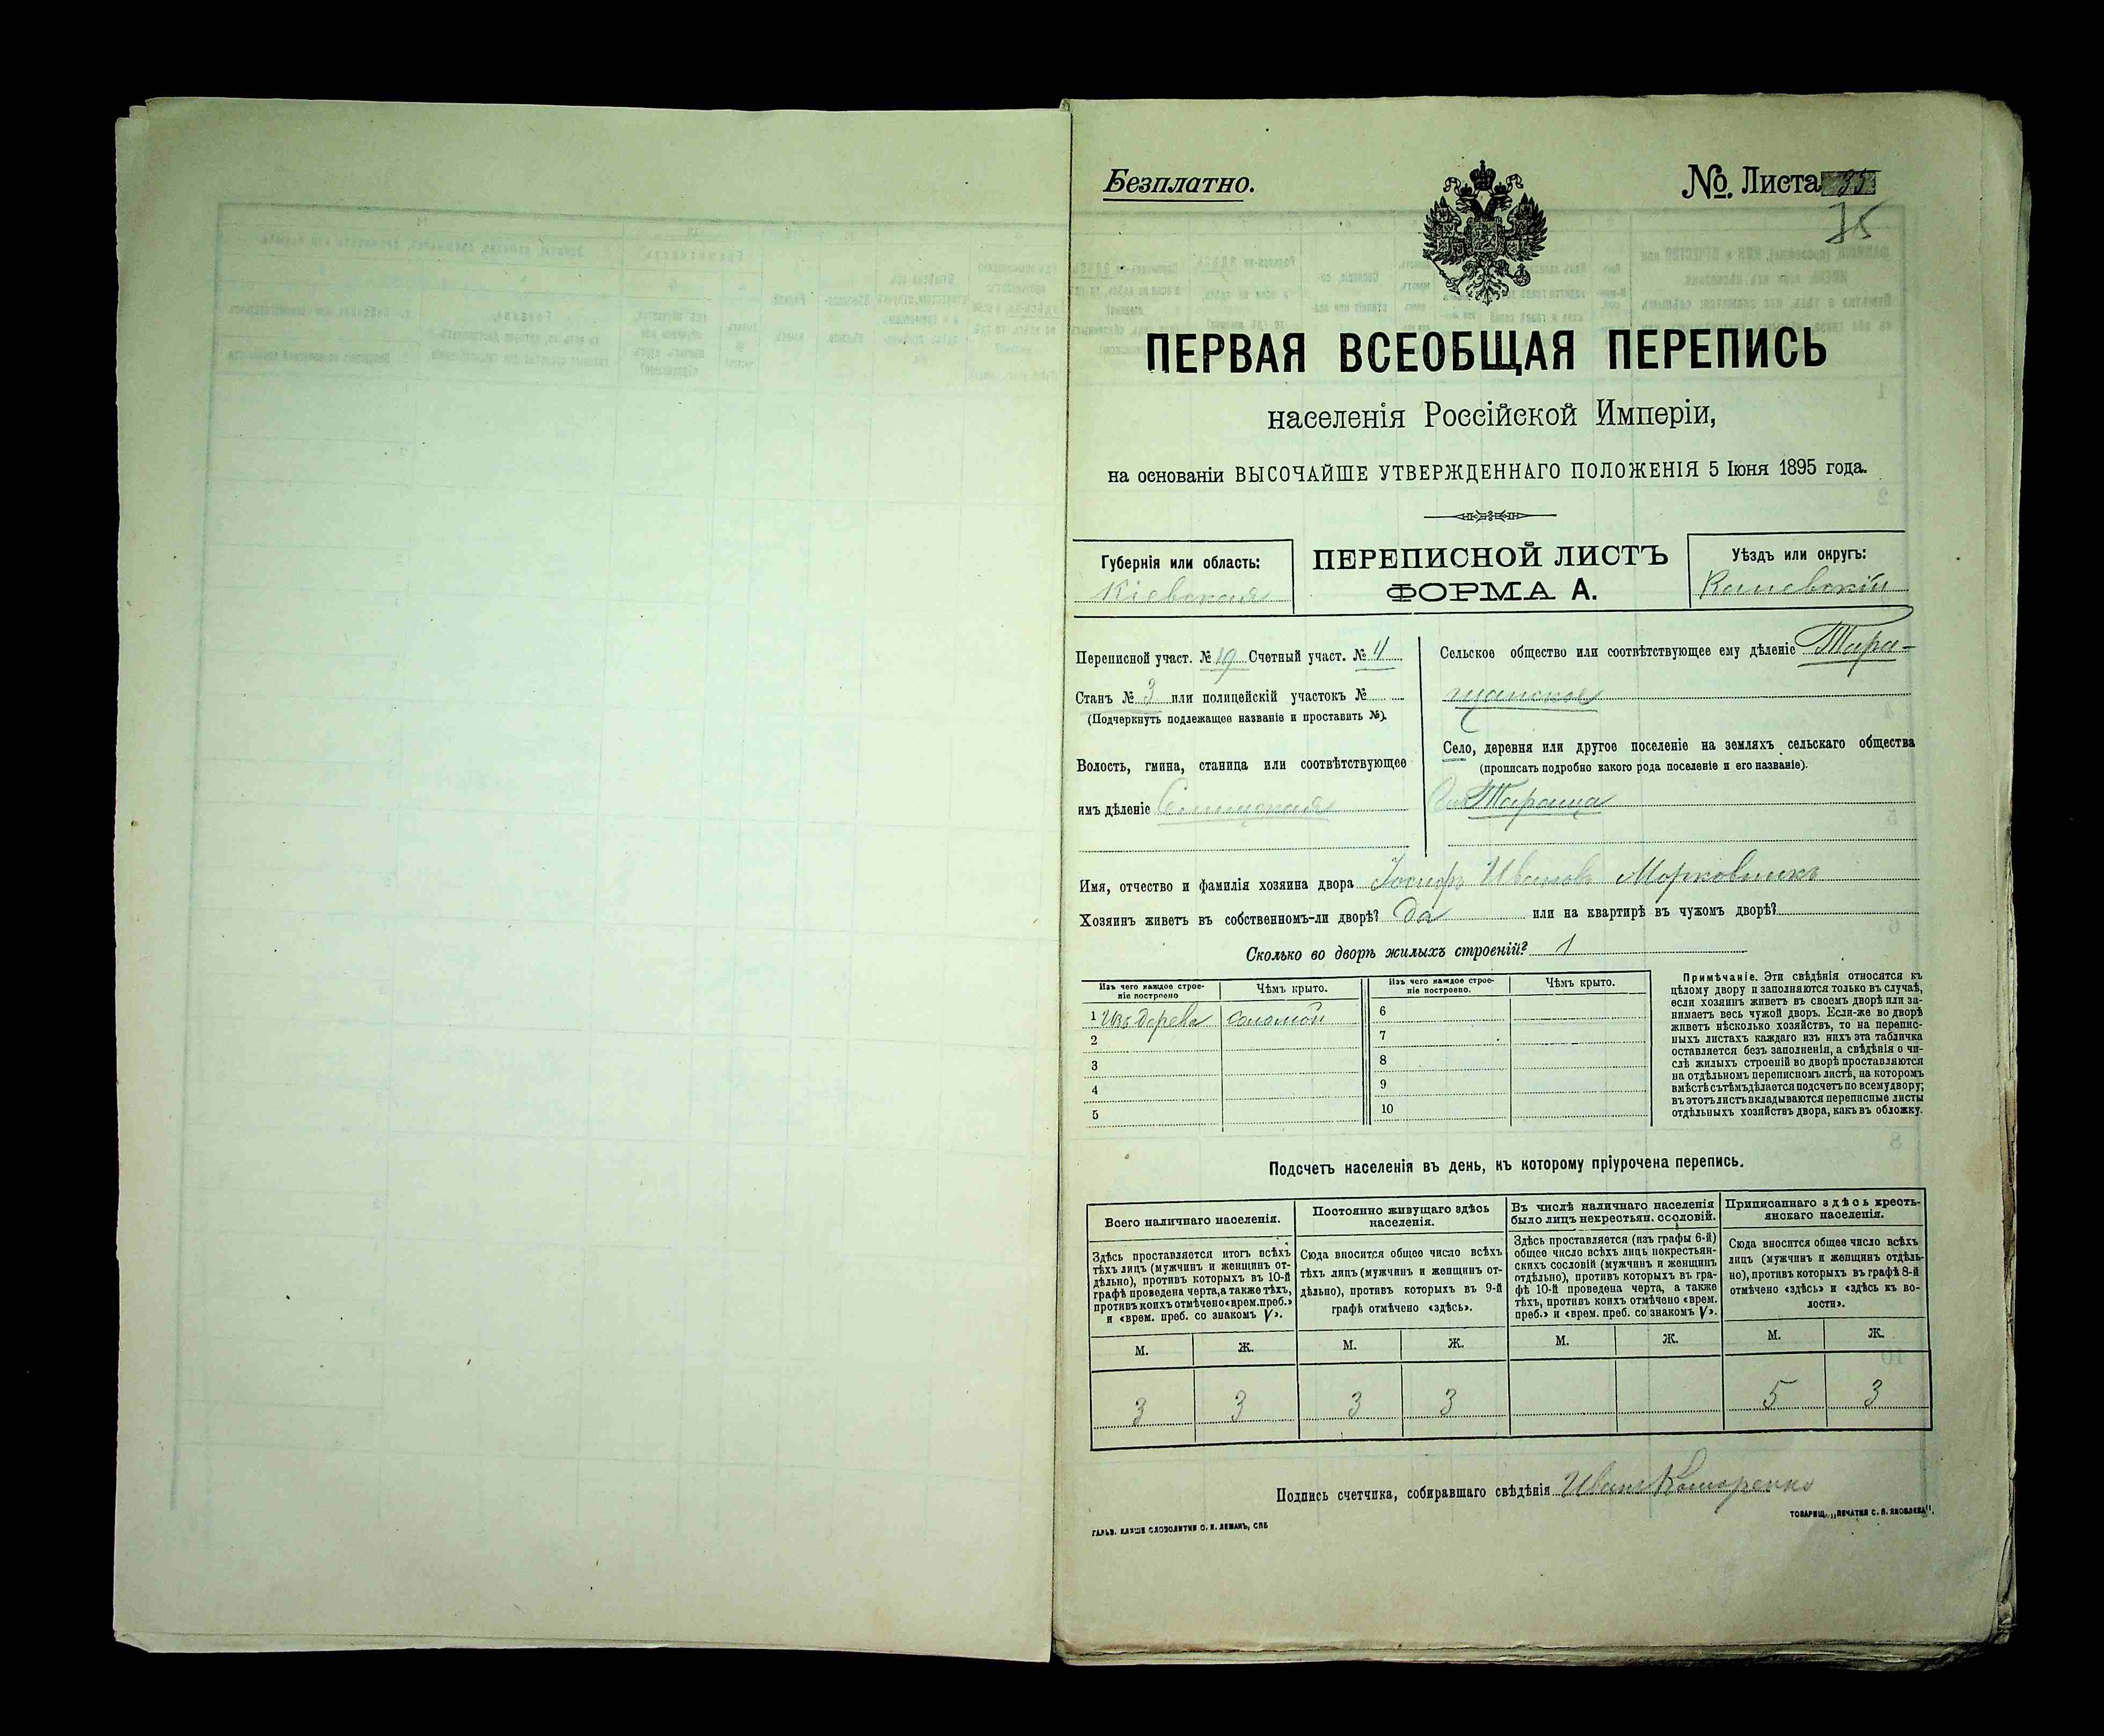 Безплатно.
№ Листа 35
35
ПЕРВАЯ ВСЕОБЩАЯ ПЕРЕПИСЬ
населенія Россійской Имперіи,
на основаніи ВЫСОЧАЙШЕ УТВЕРЖДЕННАГО ПОЛОЖЕНІЯ 5 Іюня 1895 года.
Губернія или область:
Кіевская
ПЕРЕПИСНОЙ ЛИСТЪ
ФОРМА А.
Уѣздъ или округъ:
Каневскій
Переписной участ. № 19 Счетный участ. № 4
Станъ № 3 или полицейскій участокъ №
(Подчеркнуть подлежащее названіе и проставить №).
Волость, гмина, станица или соотвѣтствующее
имъ дѣленіе
Сельское общество или соотвѣтствующее ему дѣленіе Тара-
щанское
Село, деревня или другое поселеніе на земляхъ сельскаго общества
(прописать подробно какого рода поселеніе и его названіе).
Тараща
Имя, отчество и фамилія хозяина двора Іосифъ Ивановъ Морковникъ
Хозяинъ живетъ въ собственномъ-ли дворѣ? Да или на квартирѣ въ чужомъ дворѣ?
Сколько во дворѣ жилыхъ строеній? 1
Изъ чего каждое строе-
ніе построено
Чѣмъ крыто.
1 Изъ дерева соломой
2
3
4
5
Изъ чего каждое строе-
ніе построено.
Чѣмъ крыто.
6
7
8
9
10
Примѣчаніе. Эти свѣдѣнія относятся къ
цѣлому двору и заполняются только въ случаѣ,
если хозяинъ живетъ въ своемъ дворѣ или за-
нимаетъ весь чужой дворъ. Если-же во дворѣ
живетъ нѣсколько хозяйствъ, то на перепис-
ныхъ листахъ каждаго изъ нихъ эта табличка
оставляется безъ заполненія, а свѣдѣнія о чи-
слѣ жилыхъ строеній во дворѣ проставляются
на отдѣльномъ переписномъ листѣ, на которомъ
вмѣстѣ съ тѣмъ дѣлается подсчетъ по всему двору;
въ этотъ листъ вкладываются переписные листы
отдѣльныхъ хозяйствъ двора, какъ въ обложку.
Подсчетъ населенія въ день, къ которому пріурочена перепись.
Всего наличнаго населенія.
Здѣсь проставляется итогъ всѣхъ
тѣхъ лицъ (мужчинъ и женщинъ от-
дѣльно), противъ которыхъ въ 10-й
графѣ проведена черта, а также тѣхъ,
противъ коихъ отмѣчено «врем. преб.»
и «врем. преб. со знакомъ V».
М. Ж.
3 3
Постоянно живущаго здѣсь
населенія.
Сюда вносится общее число всѣхъ
тѣхъ лицъ (мужчинъ и женщинъ от-
дѣльно), противъ которыхъ въ 9-й
графѣ отмѣчено «здѣсь».
М. Ж.
3 3
Въ числѣ наличнаго населенія
было лицъ некрестьян. сословій.
Здѣсь проставляется (изъ графы 6-й)
общее число всѣхъ лицъ некрестьян-
скихъ сословій (мужчинъ и женщинъ
отдѣльно), противъ которыхъ въ гра-
фѣ 10-й проведена черта, а также
тѣхъ, противъ коихъ отмѣчено «врем.
преб.» и «врем. преб. со знакомъ V».
М. Ж.
Приписаннаго здѣсь кресть-
янскаго населенія.
Сюда вносится общее число всѣхъ
лицъ (мужчинъ и женщинъ отдѣль-
но), противъ которыхъ въ графѣ 8-й
отмѣчено «здѣсь» и «здѣсь къ во-
лости».
М. Ж.
5 3
Подпись счетчика, собиравшаго свѣдѣнія Иванъ
ГАЛЬВ. КЛИШЕ СЛОВОЛИТНИ О. И. ЛЕМАНЪ, СПБ
ТОВАРИЩ. „ПЕЧАТНЯ С. П. ЯКОВЛЕВА".